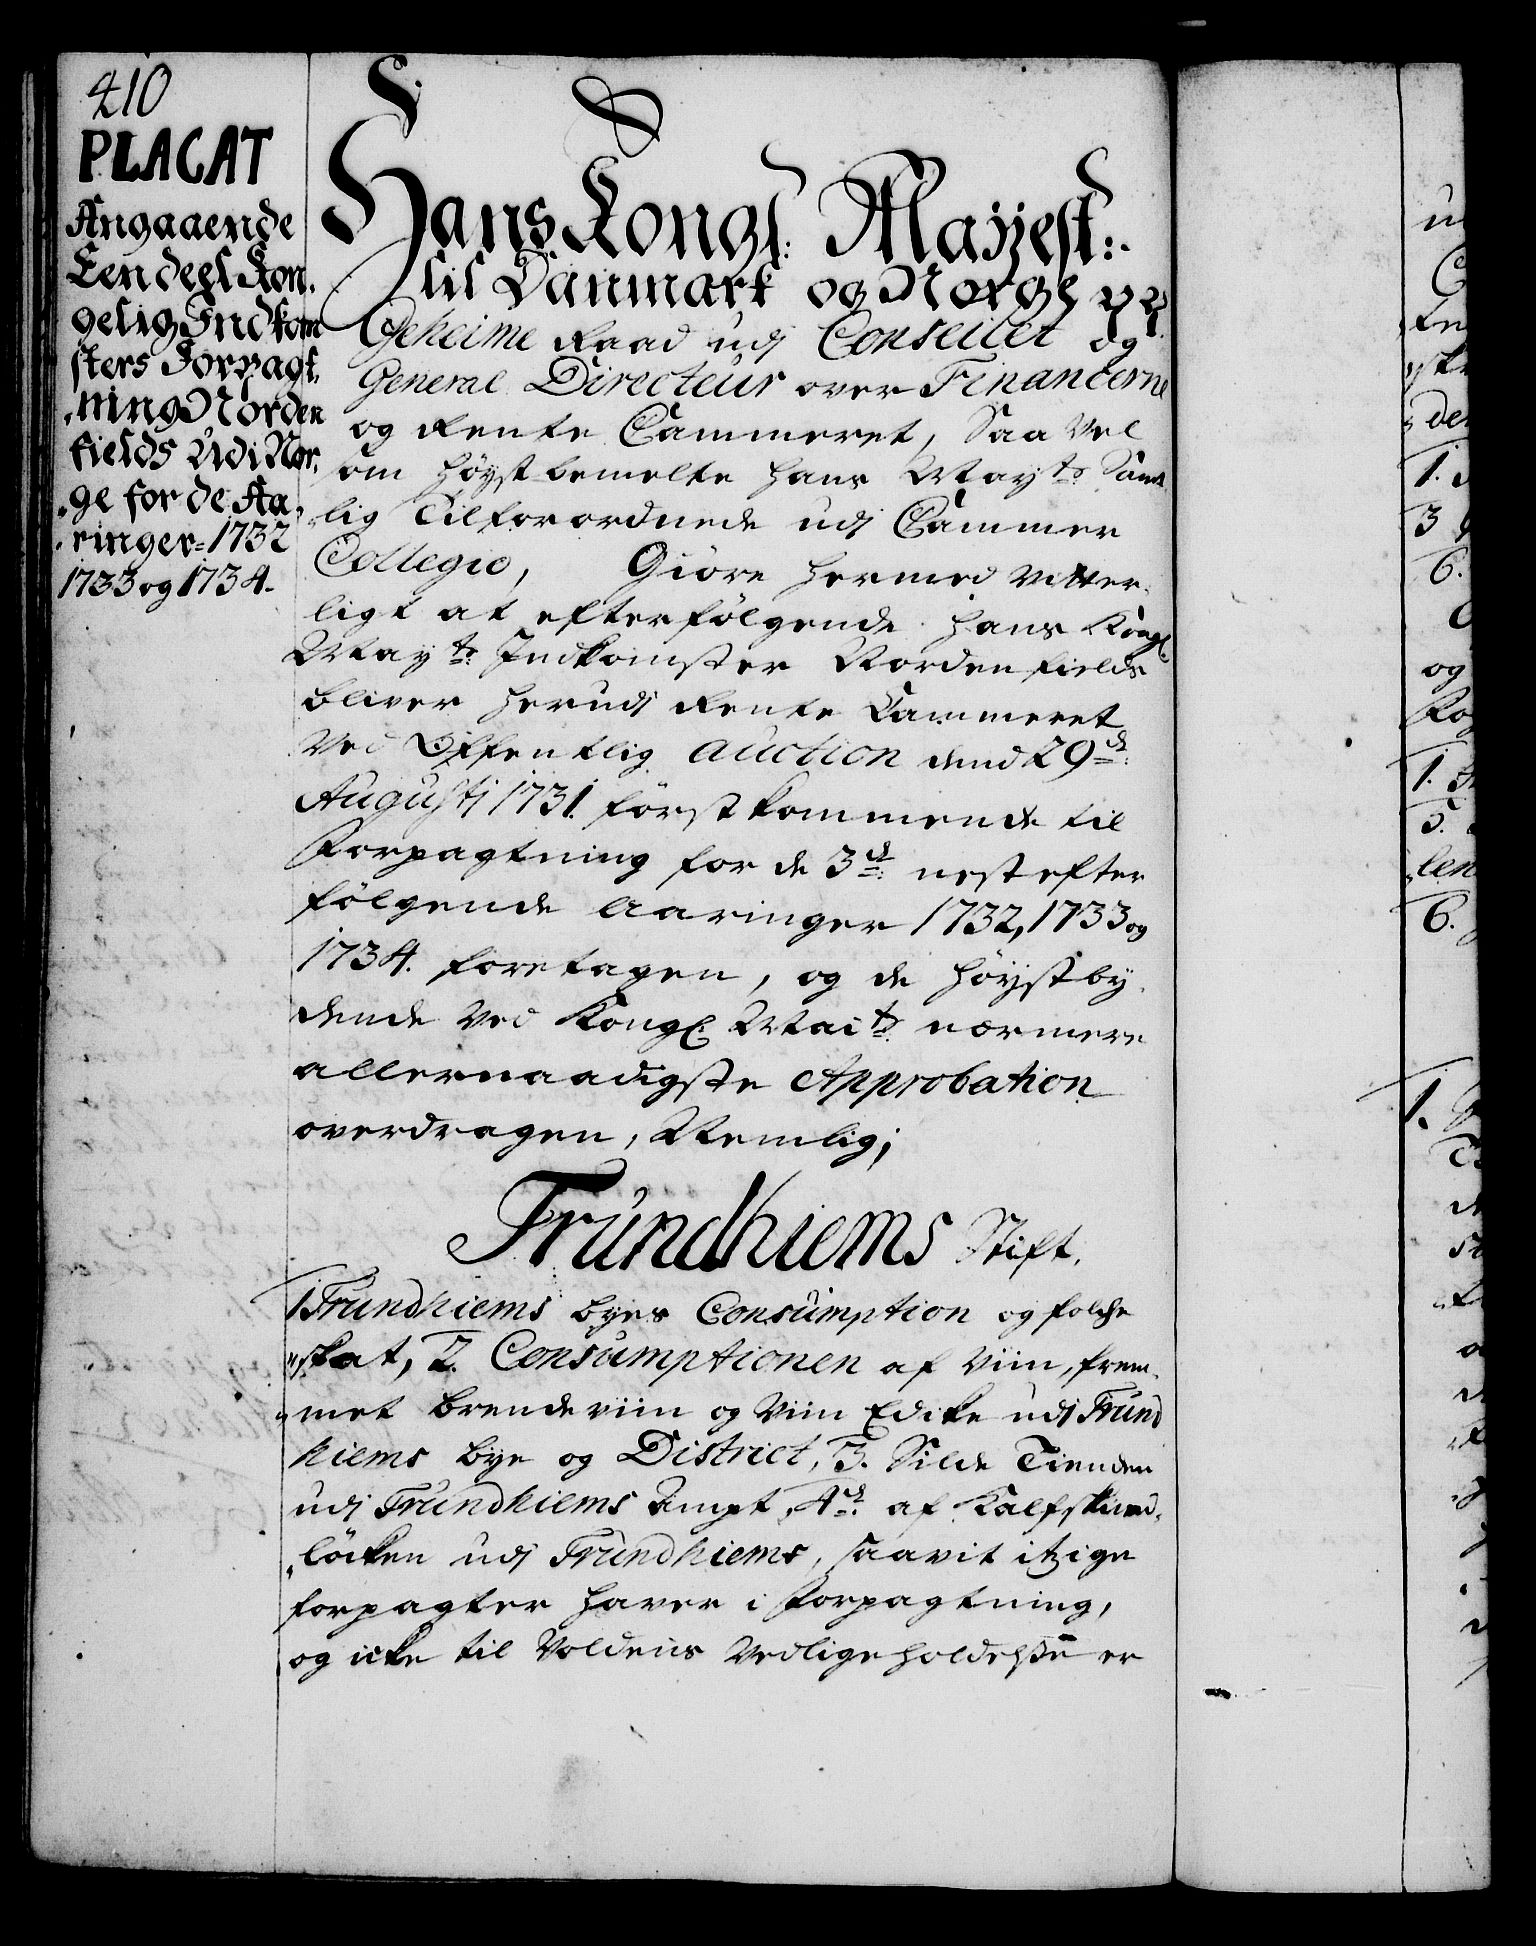 410
PLACAT
Angaaende
Een deel Kon¬
gelig Indkom
sters Forpagt¬
ning Norden
fields Udi Nor¬
ge for de Aa¬
ringer 1732
1733 og 1734.
Hans Kongl: Mayjest:
til Danmark og Norge pp
Geheime Raad udj Conseillet og
General Directeur over Financerne
og Rente Cammeret, Saa Vel
om høyst bemelte Hans Mayts: Samt¬
lig Tilforordnede udj Cammer
Collegio, Giöre hermed vitter¬
ligt at efterfölgende Hans Kongl:
Mayts: Indkomster Nordenfields
bliver herudj Rente Cammeret
Ved Offentlig Auction dend 29de:
Augustj 1731. først kommende til
Forpagtning for de 3de: nest efter
fölgende Aaringer 1732, 1733 og
1734. foretagen, og de høystby¬
dende Ved Kongl: Maits: nærmere
allernaadigste Approbation
overdragen, Nemlig;
Trundhiems Stift.
1 Trundhiems byes Consumption og folche
skat, 2. Consumptionen af Viin, frem¬
met brendeviin og Viin Edicke udj Trund
hiems bye og District, 3. Silde Tienden
udj Trundhiems Ampt, 4de: af Kalfskind¬
löcken udj Trundhiems, saavit itzige
forpagter haver i Forpagtning,
og icke til Voldens Vedligeholdelse er